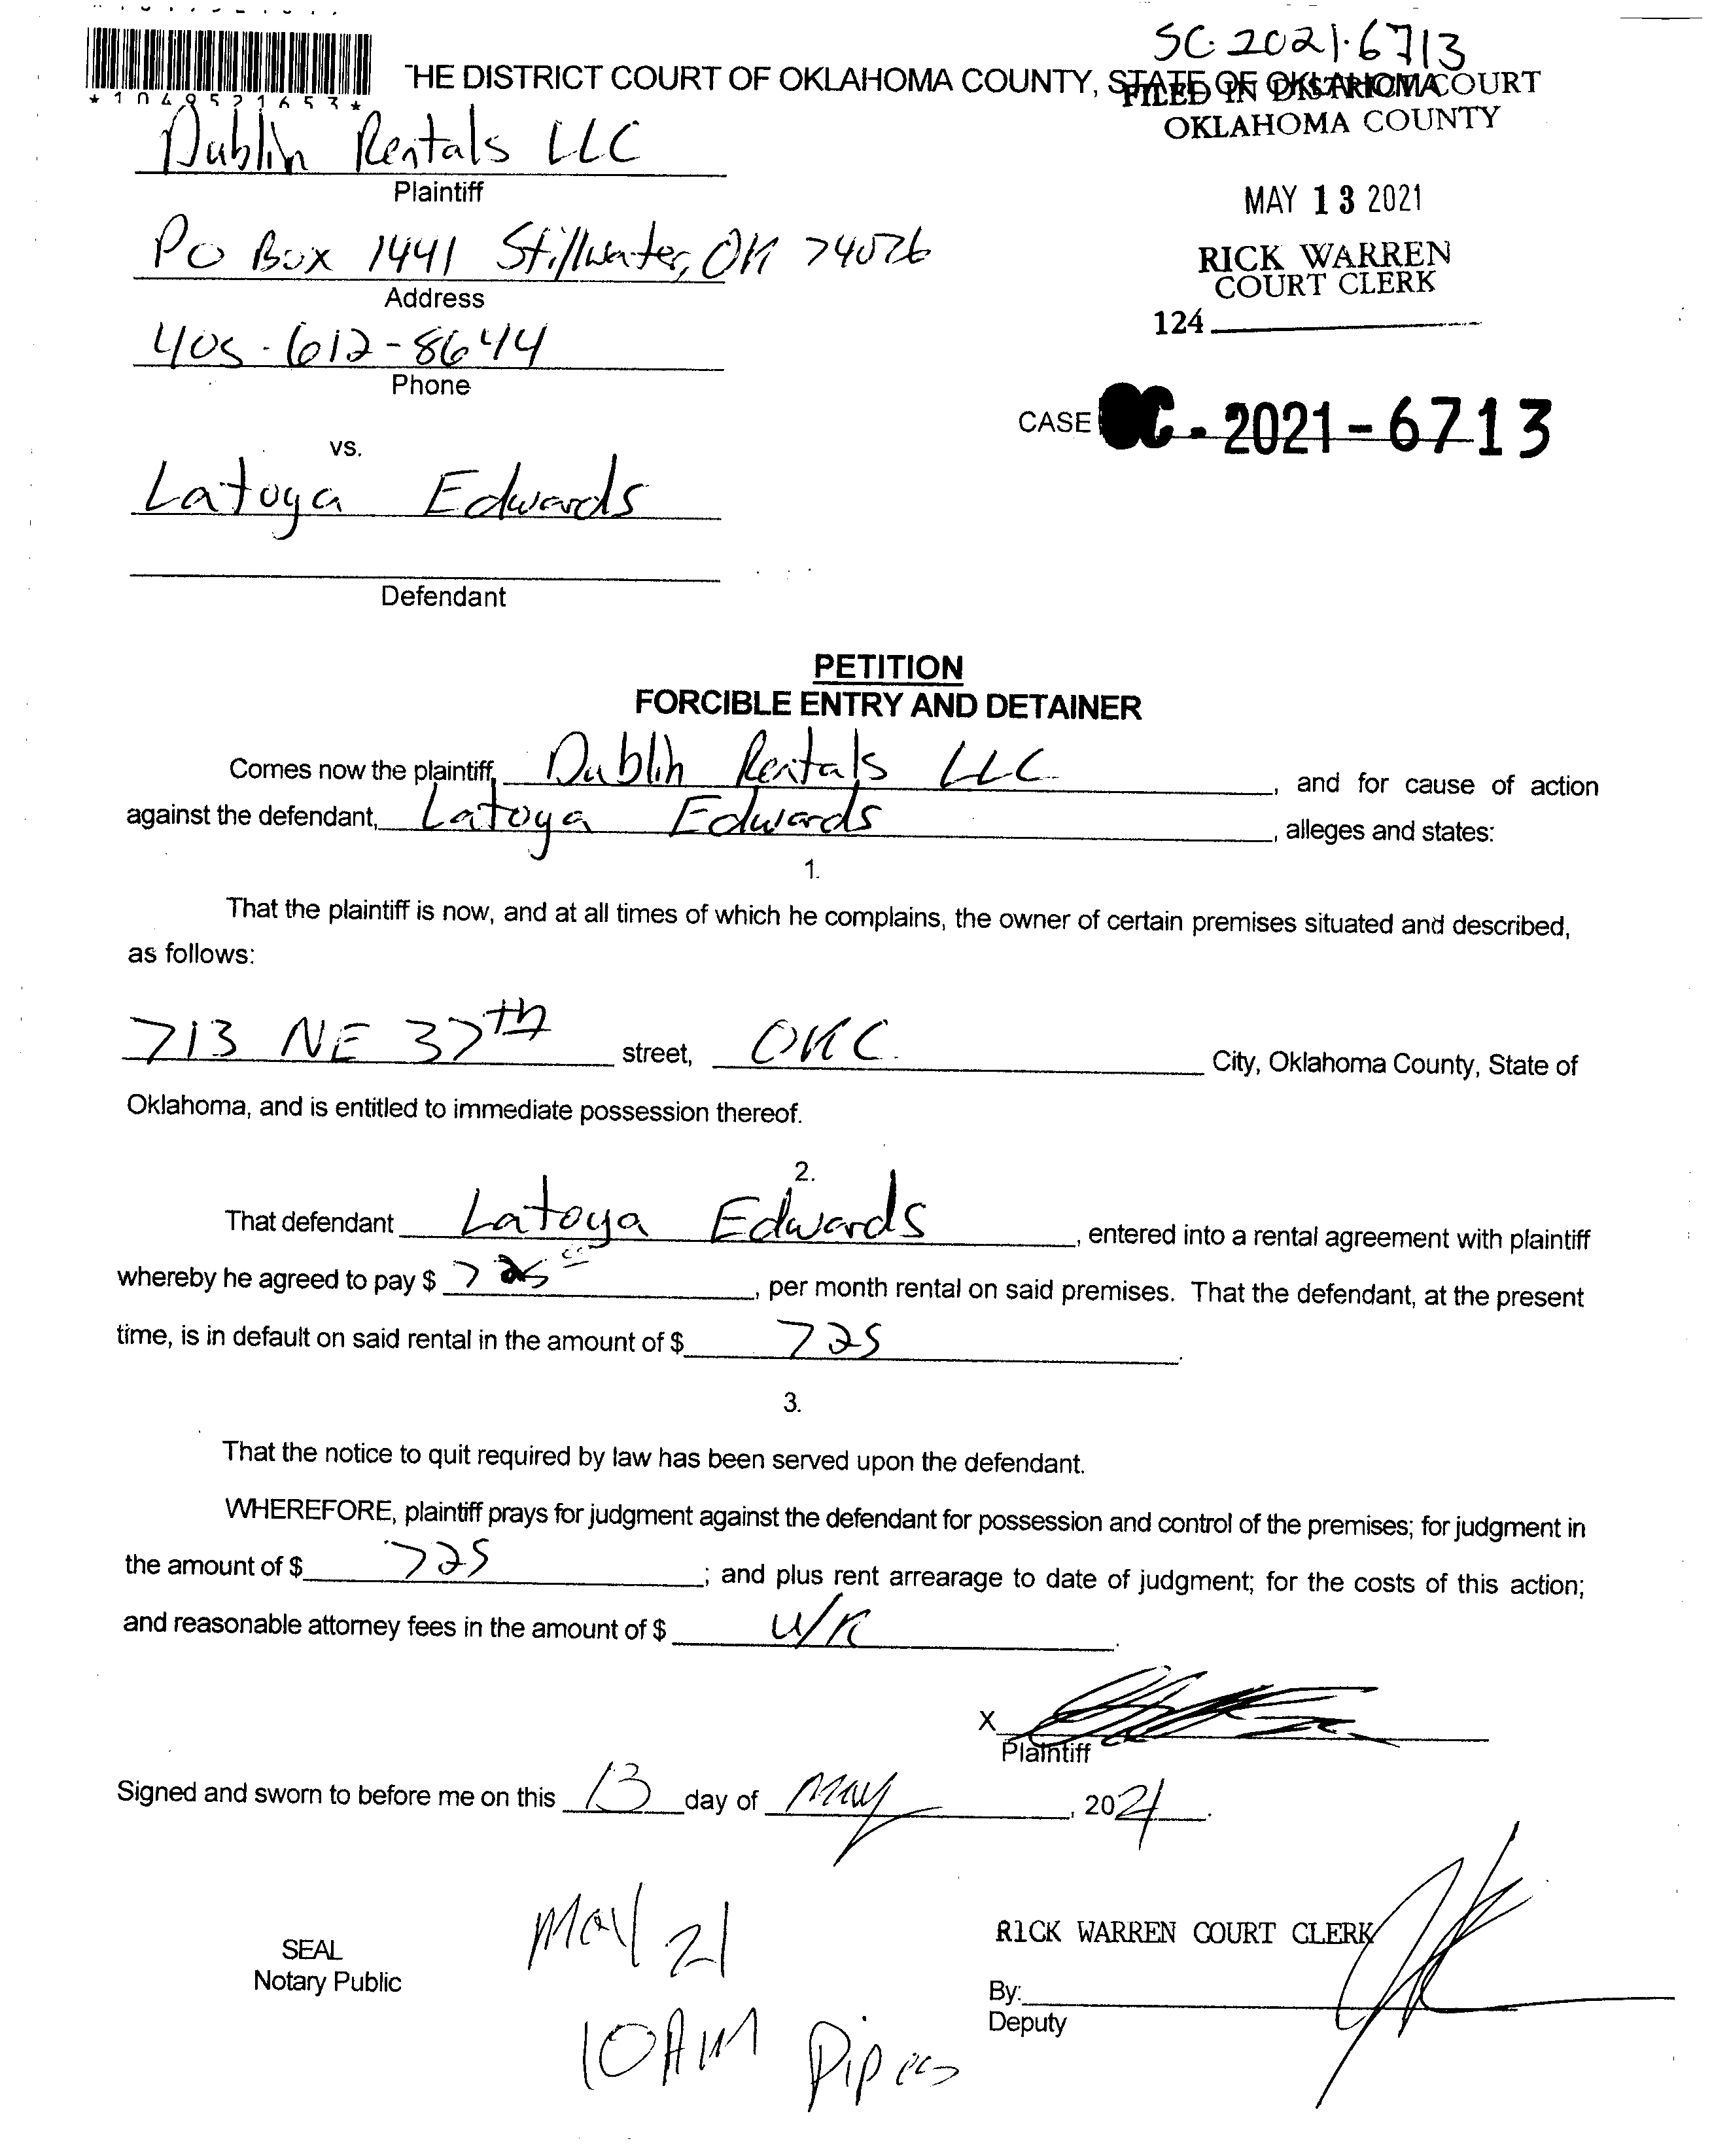 SC-2021-6713
*1049521653*
THE DISTRICT COURT OF OKLAHOMA COUNTY, STATE OF OKLAHOMA
FILED IN DISTRICT COURT
OKLAHOMA COUNTY
MAY 13 2021
RICK WARREN
COURT CLERK
124
Dublin Rentals LLC
Plaintiff
PO Box 1441 Stillwater, OK 74076
Address
405-612-8644
Phone
CASE SC-2021-6713
vs.
Latoya Edwards
Defendant
PETITION
FORCIBLE ENTRY AND DETAINER
Comes now the plaintiff, Dublin Rentals LLC, and for cause of action
against the defendant, Latoya Edwards, alleges and states:
1.
That the plaintiff is now, and at all times of which he complains, the owner of certain premises situated and described,
as follows:
713 NE 37th street, OKC City, Oklahoma County, State of
Oklahoma, and is entitled to immediate possession thereof.
2.
That defendant Latoya Edwards, entered into a rental agreement with plaintiff
whereby he agreed to pay $ 725 00, per month rental on said premises. That the defendant, at the present
time, is in default on said rental in the amount of $ 725.
3.
That the notice to quit required by law has been served upon the defendant.
WHEREFORE, plaintiff prays for judgment against the defendant for possession and control of the premises; for judgment in
the amount of $ 725; and plus rent arrearage to date of judgment; for the costs of this action;
and reasonable attorney fees in the amount of $ U/K.
X
Plaintiff
Signed and sworn to before me on this 13 day of May, 2021.
May 21
SEAL
Notary Public
RICK WARREN COURT CLERK
By:
Deputy
10AM